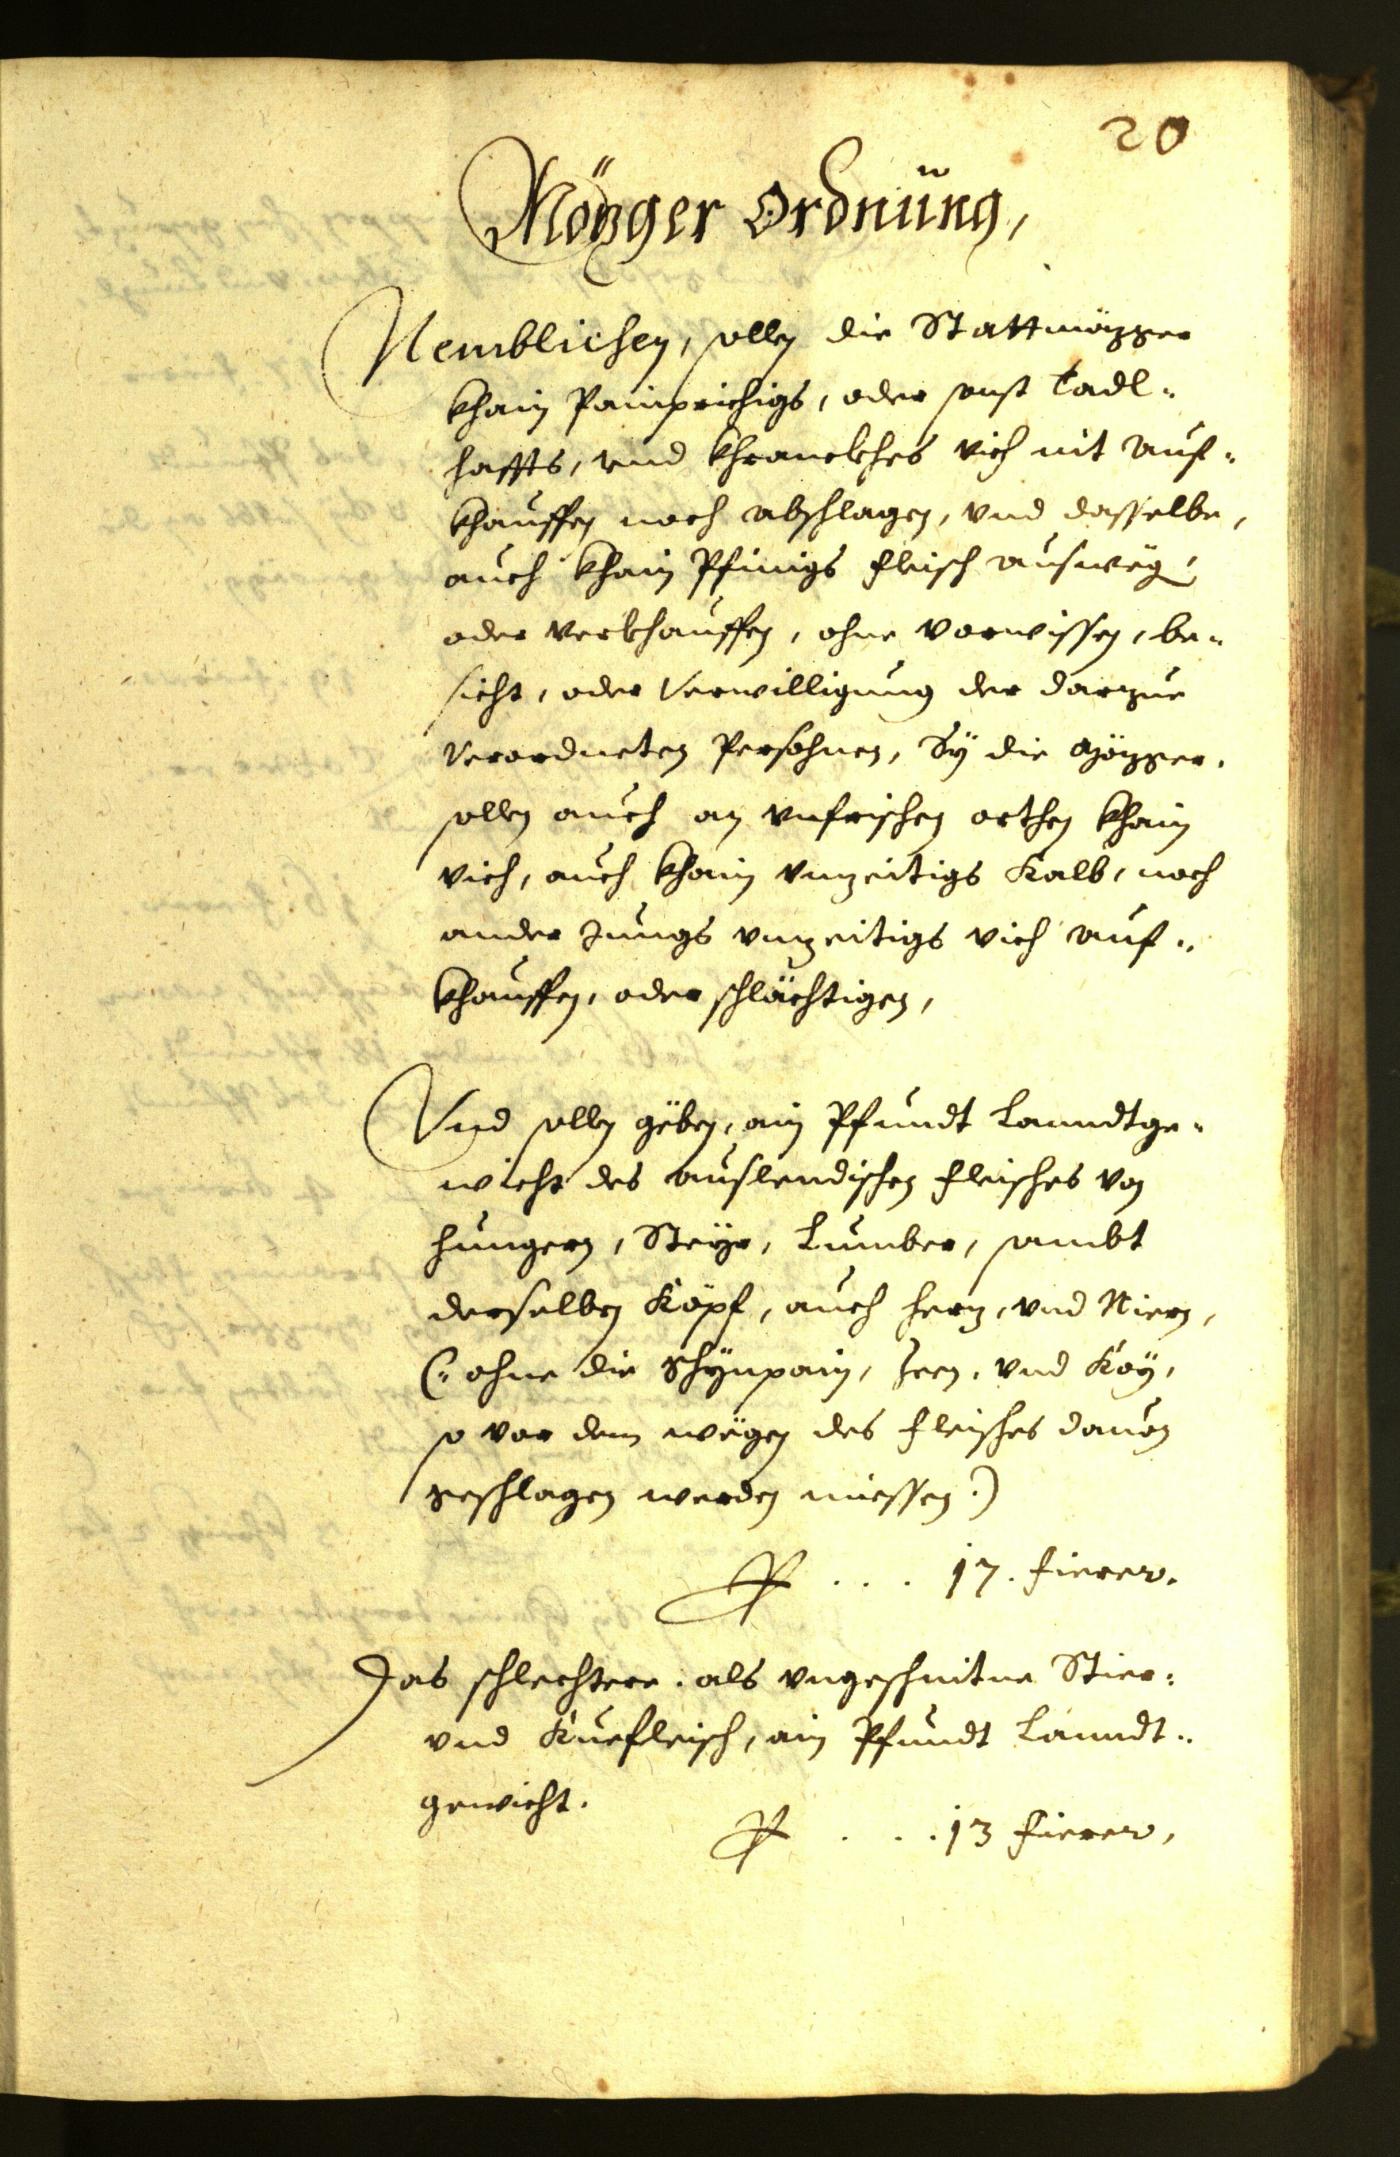 20
Mözger Ordnung,
Nemblichen, sollen die Stattmözger
khain Painprichigs, oder sonst tadl„
haffts, vnd khranckhes vich nit auf„
khauffen noch abschlagen, vnd dasselbe,
auch khain Pfinigs fleisch auswög
oder verkhauffen, ohne vorwissen, be„
sicht, oder Verwilligung der darzue
Verordneten Persohnen, Sÿ die Mözger,
sollen auch an vnfrischen orthen khain
vich, auch khain vnzeitigs Kalb, noch
ander Jungs vnzeitigs vich auf„
khauffen, oder schlächtigen,
Vnd sollen göben, ain Pfundt Lanndtge„
wicht des auslendischen fleisches von
hungern, Steÿr, Lumber, sambt
derselben Köpf, auch herz, vnd Niern,
(: ohne die Schÿnpain, Zeen, vnd Köÿ,
so vor dem wögen des fleisches dauon
geschlagen werden miessen :)
P . . . 17. fierer.
Das schlechtere, als vngeschnitne Stier:
vnd Kuefleisch, ain Pfundt Lanndt„
gewicht.
P . . . 13 fierer,